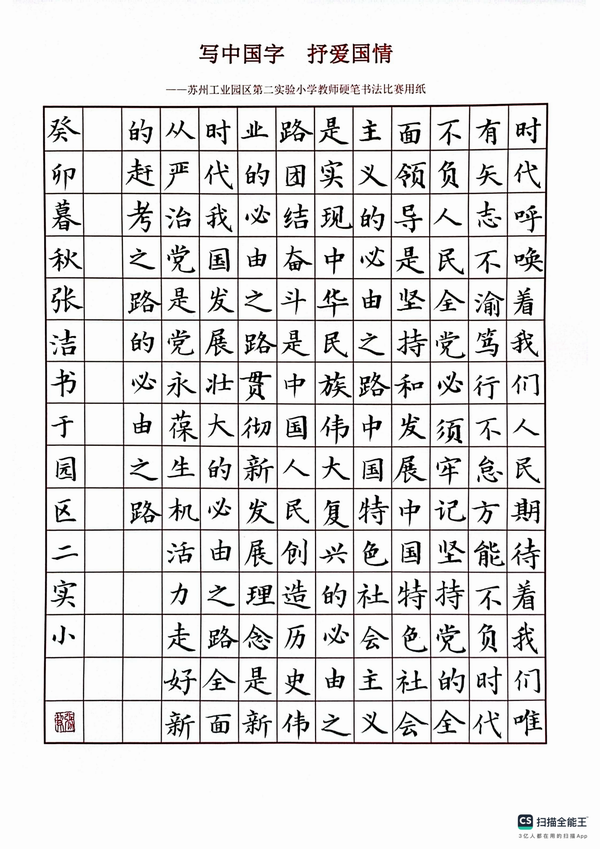 写中国字 抒爱国情
——苏州工业园区第二实验小学教师硬笔书法比赛用纸
时代呼唤着我们人民期待着我们唯
有矢志不渝笃行不怠方能不负时代
不负人民全党必须牢记坚持党的全
面领导是坚持和发展中国特色社会
主义的必由之路中国特色社会主义
是实现中华民族伟大复兴的必由之
路团结奋斗是中国人民创造历史伟
业的必由之路贯彻新发展理念是新
时代我国发展壮大的必由之路全面
从严治党是党永葆生机活力走好新
的赶考之路的必由之路
癸卯暮秋张洁书于园区二实小
CS 扫描全能王
3亿人都在用的扫描App